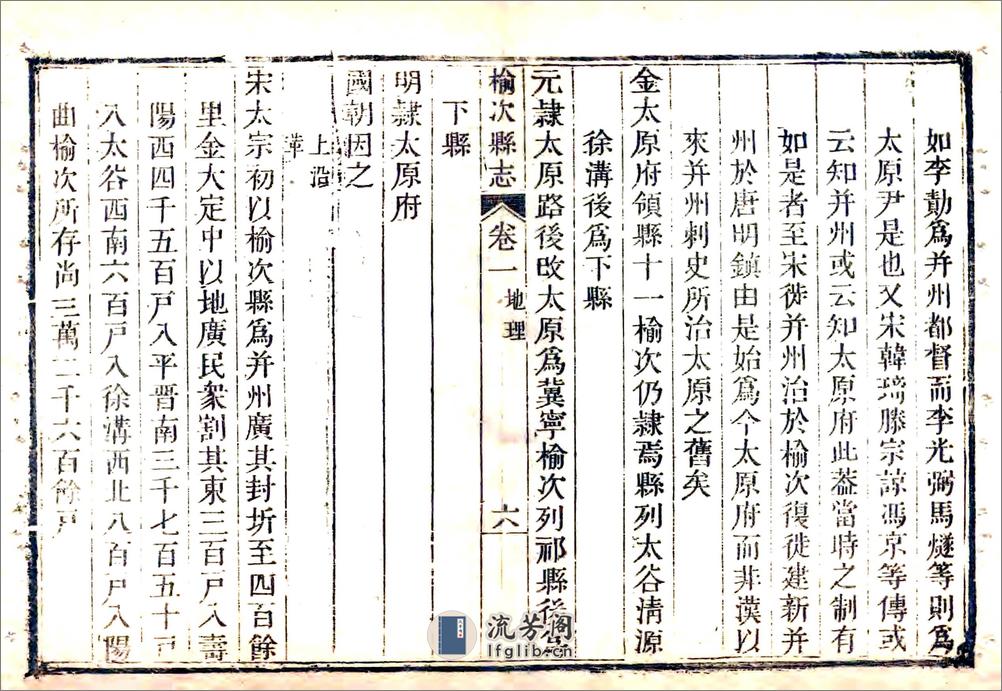 如李勣爲并州都督而李光弼馬燧等則爲
太原尹是也又宋韓琦滕宗諒馮京等傳或
云知并州或云知太原府此葢當時之制有
如是者至宋徙并州治於榆次復徙建新并
州於唐明鎮由是始爲今太原府而非漢以
來并州刺史所治太原之舊矣
金太原府領縣十一榆次仍隷焉縣列太谷淸源
徐溝後爲下縣
元隷太原路後改太原爲冀寧榆次列祁縣後爲
榆次縣志 卷一 地理 六
下縣
明隷太原府
國朝因之
上沿
革
宋太宗初以榆次縣爲并州廣其封圻至四百餘
里金大定中以地廣民衆割其東三百戸入壽
陽西四千五百戸入平晋南三千七百五十戸
入太谷西南六百戸入徐溝西北八百戸入陽
曲榆次所存尚三萬二千六百餘戸
流芳阁
lfglib.cn